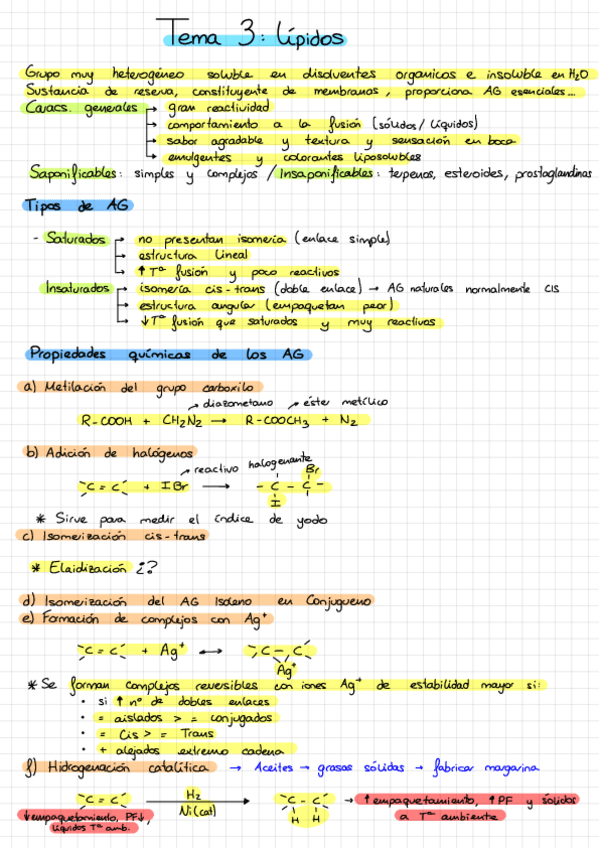 Tema 3: Lípidos
Grupo muy heterogéneo soluble en disolventes organicos e insoluble en H₂O
Sustancia de reserva, constituyente de membranas, proporciona AG esenciales...
Caracs. generales → gran reactividad
→ comportamiento a la fusión (sólidos/líquidos)
→ sabor agradable y textura y sensación en boca
→ emulgentes y colorantes liposolubles
Saponificables: simples y complejos / Insaponificables: terpenos, esteroides, prostaglandinas
Tipos de AG
- Saturados → no presentan isomeria (enlace simple)
→ estructura lineal
→ ↑ Tª fusión y poco reactivos
Insaturados → isomería cis-trans (doble enlace) → AG naturales normalmente cis
→ estructura angular (empaquetan peor)
→ ↓Tª fusión que saturados y muy reactivos
Propiedades químicas de los AG
a) Metilación del grupo carboxilo
→ diazometano → éster metílico
R-COOH + CH₂N₂ → R-COOCH₃ + N₂
b) Adición de halógenos
→ reactivo halogenante
Br
C = C + I Br → - C - C -
I
* Sirve para medir el índice de yodo
c) Isomerización cis-trans
* Elaidización ¿?
d) Isomerización del AG Isoleno en Conjugueno
e) Formación de complejos con Ag⁺
C = C + Ag⁺ ↔ C - C
Ag⁺
* Se forman complejos reversibles con iones Ag⁺ de estabilidad mayor si:
• si ↑ nº de dobles enlaces
• = aislados > = conjugados
• = Cis > = Trans
• + alejados extremo cadena
f) Hidrogenación catalítica → Aceites → grasas sólidas → fabricar margarina
C = C H₂ Ni(cat) → C - C → ↑ empaquetamiento, ↑ PF y sólidos
H H a Tª ambiente
↓empaquetamiento, PF↓,
líquidos Tª amb.